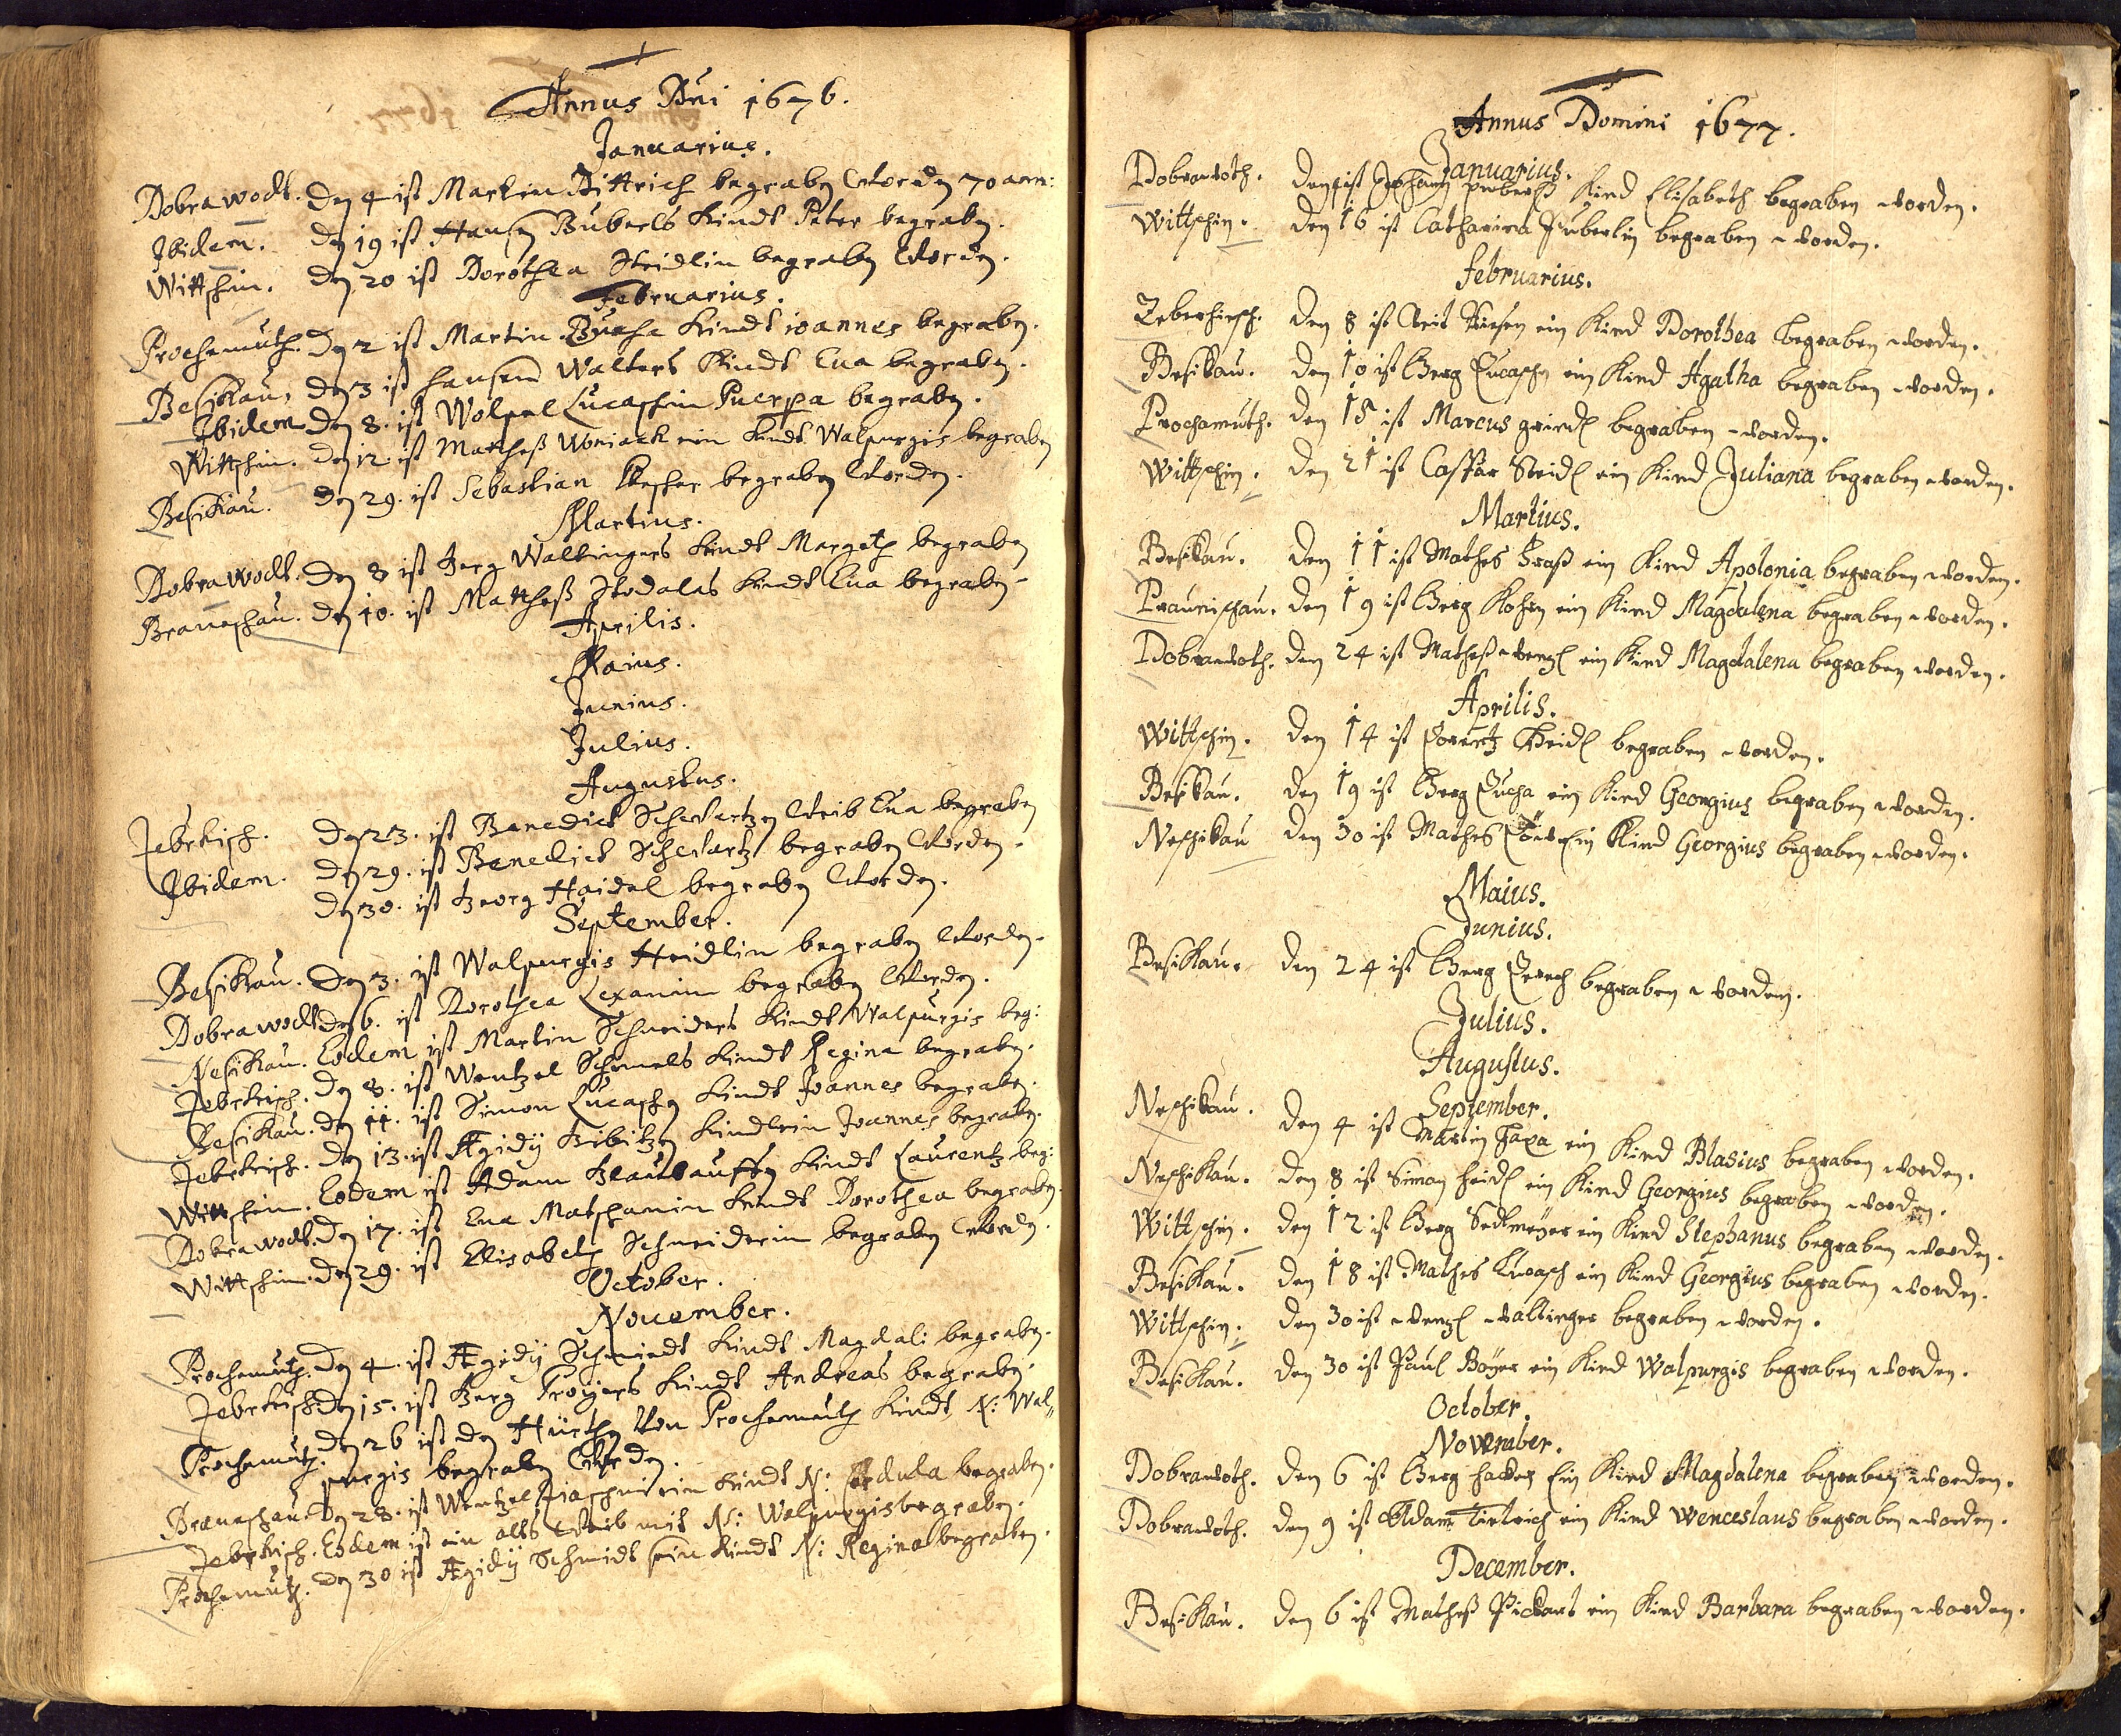 Annus Dni 1676.
Januarius.
Dobrawodt. Den 4 ist Martin Dittrich begraben worden 70 ann:
Ibidem. den 19 ist Hansen Buberls Kindt Peter begraben.
Wittschin. den 20 ist Dorothea Heidlin begraben worden.
Februarius.
Prochamuth. Den 2 ist Martin Kindt ioannes begraben.
Besikau, den 3 ist hansen Walters Kindt Eva begraben.
Ibidem den 8. ist Wolpal Lucaschin Puerpera begraben.
Wittschin. den 12 ist Matheß Woniack ein Kindt Walpurgis begraben
Besikau. den 29. ist Sebastian begraben worden.
Martius.
Dobrawodt. Den 8 ist Georg Waltingers Kindt Margeth begraben
Braunschau. den 10. ist Matheß Kindt Eva begraben.
Aprilis.
Maius.
Junius.
Julius.
Augustus.
Zebrhisch. den 23. ist Benedict Schwartzen Weib Eva begraben
Ibidem. den 29. ist Benedict Schwartz begraben worden.
den 30. ist Georg Haidel begraben worden.
September.
Besikau. den 3. ist Walpurgis Heidlin begraben worden.
Dobrawodt den 6. ist Dorothea Lexanin begraben worden.
Nesikau. Eodem ist Martin Schneiders Kindt Walpurgis beg:
Zebrhisch. den 8. ist Wentzel Schmels Kindt Regina begraben.
Besikau. den 11. ist Simon Lucaschen Kindt Joannes begraben.
Zebrhisch. den 13. ist Ægidÿ Kindlein Joannes begraben.
Wittschin. Eodem ist Adam Kindt Laurentz beg:
Dobrawodt. den 17. ist Eva Matschanin Kindt Dorothea begraben.
Wittschin. den 29. ist Elisabeth Schneiderin begraben worden.
October.
November.
Prochamuth. den 4. ist Ægidÿ Schmiedt Kindt Magdal: begraben.
Zebrhisch. den 15. ist Georg Troÿers Kindt Andreas begraben.
Prochamuth. den 26 ist den Hürthen Von Prochamuth Kindt N: Wal„
purgis begraben worden.
Braunschau. den 28. ist Wentzel ein Kindt N: begraben.
Zebrhisch. Eodem ist ein altes Weib mit N: Walpurgis begraben.
Prochamuth. den 30 ist Ægidÿ Schmidt sein Kindt N: Regina begraben.
Annus Domini 1677.
Januarius.
Dobrawoth. Den ist Johann Kind Elisabeth begraben worden.
Wittschin. den 16 ist Catharina begraben worden.
februarius.
Zeberhisch. den 8 ist Veit ein Kind Dorothea begraben worden.
Besikau. den 10 ist Georg Lucaschen ein Kind Agatha begraben worden.
Prochamuth. den 18 ist Marcus begraben worden.
Wittschin. den 21 ist Caspar Heidl ein Kind Juliana begraben worden.
Martius.
Besikau. den 11 ist Mathes ein Kind Apolonia begraben worden.
Praunischau. den 19 ist Georg ein Kind Magdalena begraben worden.
Dobrawoth. den 24 ist Matheß Wenzl ein Kind Magdalena begraben worden.
Aprilis.
Wittschin. den 14 ist Lorentz Heidl begraben worden.
Besikau. den 19 ist Georg Lucha ein Kind Georgius begraben worden.
Neschikau den 30 ist Mathes ein Kind Georgius begraben worden.
Maius.
Junius.
Besikau. den 24 ist Georg begraben worden.
Julius.
Augustus.
September.
Neschikau. den 4 ist Martin ein Kind Blasius begraben worden.
Neschikau. den 8 ist Simon heidl ein Kind Georgius begraben worden.
Wittschin. den 12 ist Georg Sedlmeyer ein Kind Stephanus begraben worden.
Besikau. den 18 ist Mathes Lucasch ein Kind Georgius begraben worden.
Wittschin. den 30 ist Wenzl Waltinger begraben worden.
Besikau. den 30 ist Paul Boyer ein Kind Walpurgis begraben worden.
October.
November.
Dobrawoth. den 6 ist Georg hacker Ein Kind Magdalena begraben worden.
Dobrawoth. den 9 ist Adam Tietrich ein Kind Wenceslaus begraben worden.
December.
Besikau. den 6 ist Matheß Pickart ein Kind Barbara begraben worden.